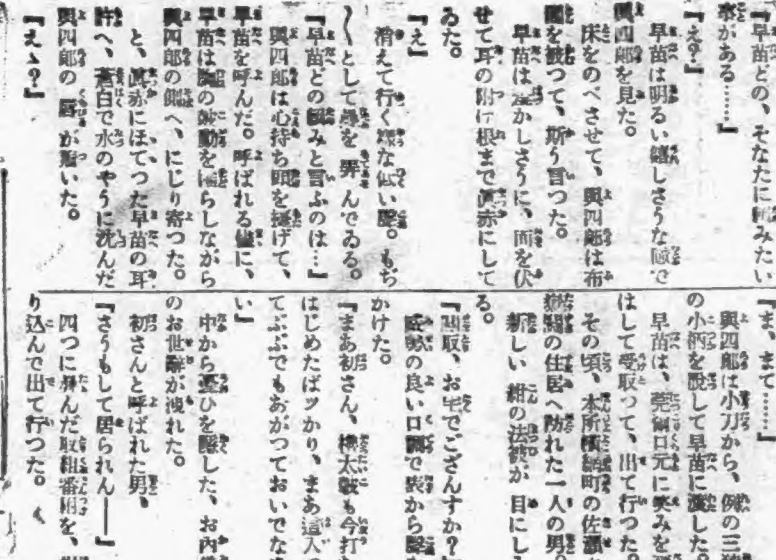 『早苗どの、そなたに頼みたい
事がある……』
『え?』
早苗は明るい嬉しさうな顔で
與四郎を見た。
床をのべさせて、與四郎は布
團を被つて、斯う言つた。
早苗は羞かしさうに、面を伏
せて耳の附け根まで眞赤にして
ゐた。
『え』
消えて行く樣な低い聲。もぢ
〳〵として袂を弄んでゐる。
『早苗どの頼みと言ふのは…』
與四郎は心持ち頭を擡げて、
早苗を呼んだ。呼ばれる儘に、
早苗は胸の鼓動を鳴らしながら
與四郎の側へ、にじり寄つた。
と、眞赤にほてつた早苗の耳
許へ、蒼白で水のやうに沈んだ
與四郎の唇が囁いた。
『えゝ?』
『ま、まて……』
與四郎は小刀から、例の三
の小柄を脱して早苗に渡した
早苗は、莞爾口元に笑みを
はして受取つて、出て行つた。
その頃、本所横網町の佐渡
の住居へ訪れた一人の男。
新しい紺の法被が目にし
る。
『關取、お宅でござんすか?』
の良い口調で表から聲
かけた。
『まあ初さん、櫓太皷も今打
はじめたばツかり、まあ這入
てぶぶでもあがつておいでな
い』
中から憂ひを隱した、お内
のお世辭が洩れた。
初さんと呼ばれた男、
『さうもして居られん――』
四つに疊んだ取組番組を、
り込んで出て行つた。